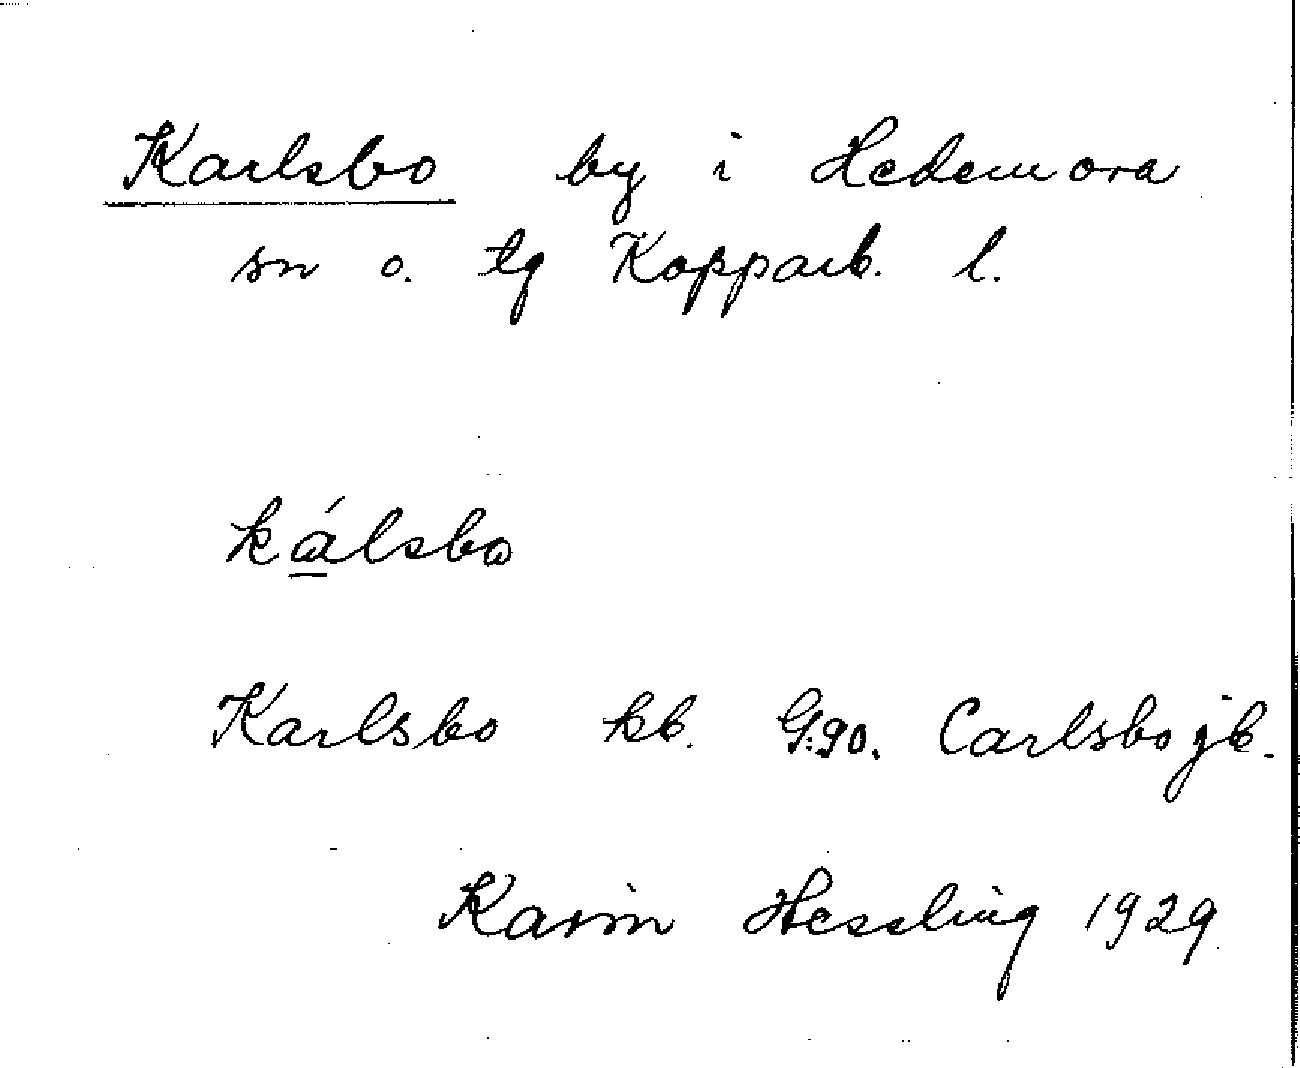 Karlsbo by i Hedemora
sn o. tg Kopparb. l.
ká̱lsbo
Karlsbo kb. G:90. Carlsbo jb.
Karin Hessling 1929